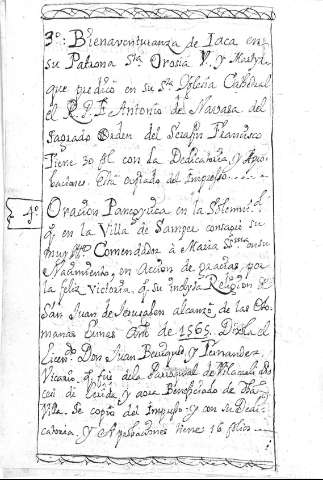 3º: Bienaventuranza de Iaca en
su Patrona Sta Orosia V. y Martyr
que predicó en su Sta Yglesia Cathedral
el R. P. F. Antonio de Navasa del
Sagrado Orden del Serafin Francisco
Tiene 30 fl con la Dedicatoria, y Apro-
baciones. Esta copiado del Impresso
4º. Oracion Panegyrica en la Solemnid. d.
q. en la Villa de Samper consagró su
muy Comendador à Maria SSma en su
Nacimiento, en Accion de gracias, por
la feliz Victoria, q. su inclyta Relig.on de
San Juan de Jerusalen alcanzó de las Oto-
manas Lunas de 1565. Dixola el
Licen.do Don Juan y Fernandez
Vicario, q. fue de la Parroquial de
de Lerida y aora Beneficiado de dha
Villa. Se copió del Impresso, y con su Dedi-
catoria, y Aprobaciones tiene 16 folios